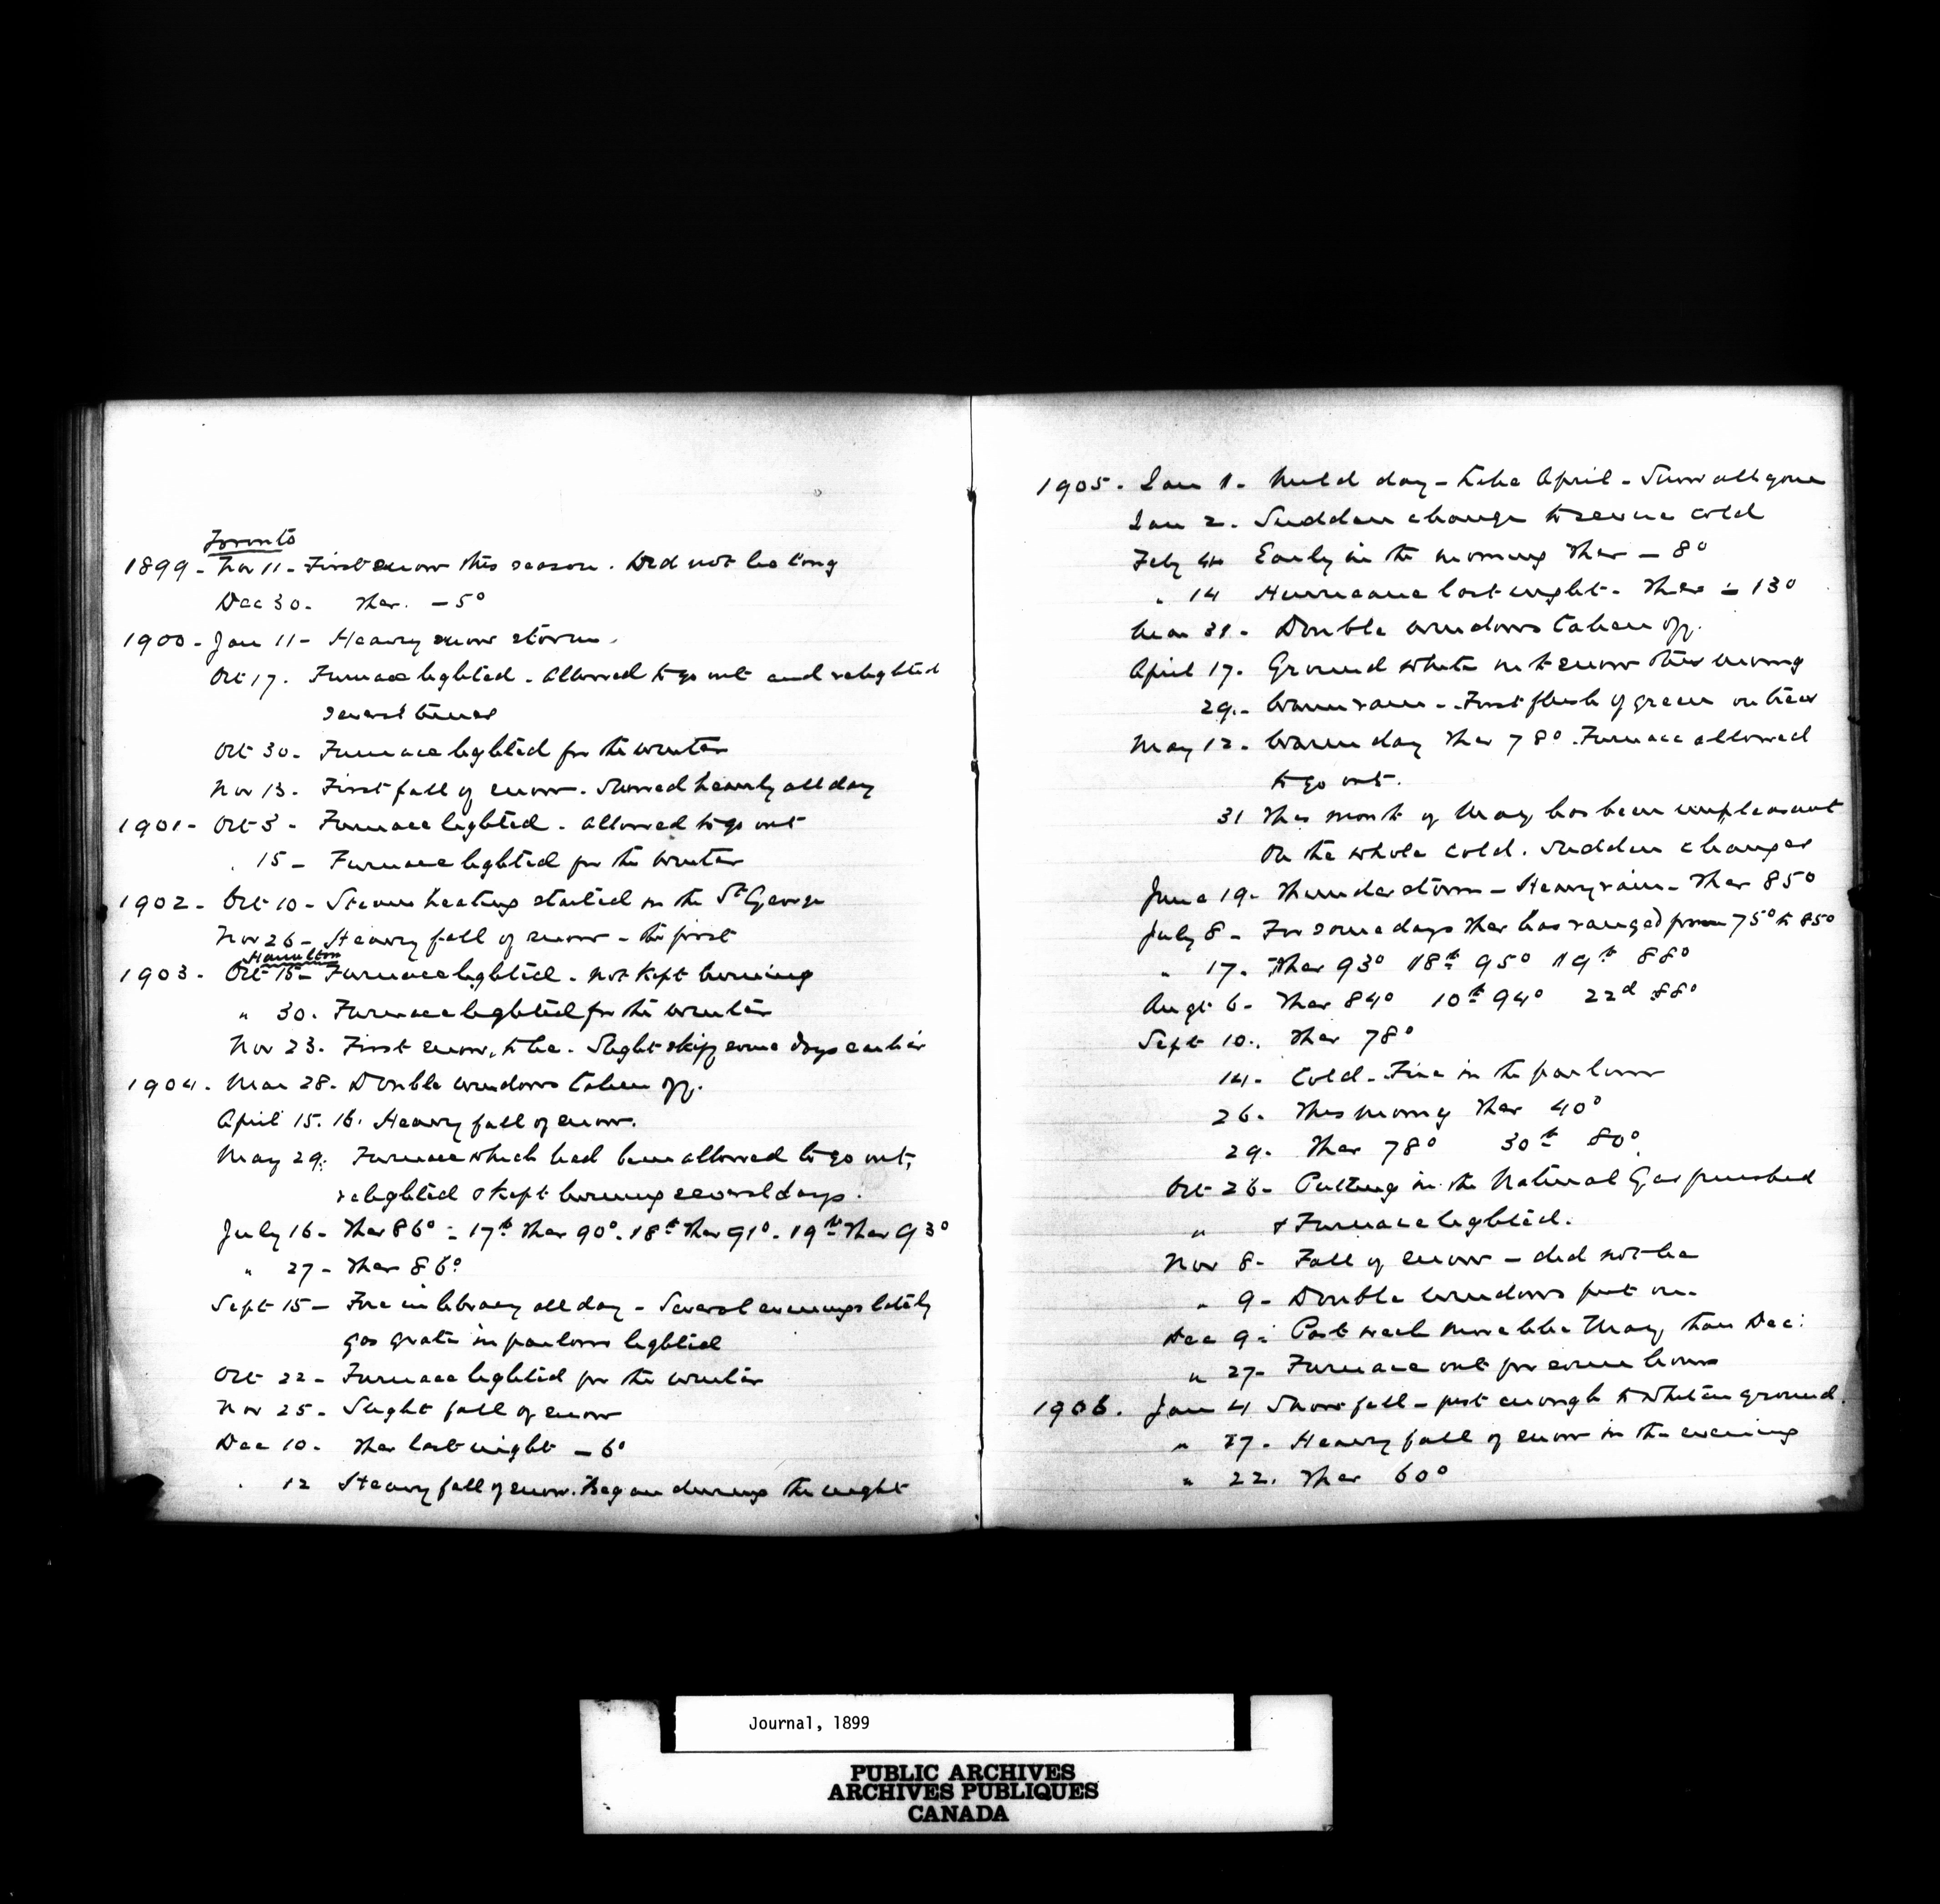 Toronto
1899 - Nov 11 - First snow this season. Did not lie long
Dec 30. Ther. - 5°
1900 - Jan 11 - Heavy snow storm.
Oct 17. Furnace lighted - allowed to go out and relighted
several times
Oct 30. Furnace lighted for the winter
Nov 13. First fall of snow. Snowed heavily all day
1901 - Oct 3 - Furnace lighted - allowed to go out
" 15 - Furnace lighted for the winter
1902 - Oct 10 - Steam heating started in the St George
Nov 26 - Heavy fall of snow - the first
Hamilton
1903 - Oct 15 - Furnace lighted - not kept burning
" 30. Furnace lighted for the winter
Nov 23. First snow, to lie. Slight skiff some days earlier
1904. Mar 28. Double windows taken off.
April 15. 16. Heavy fall of snow.
May 29. Furnace which had been allowed to go out,
relighted & kept burning several days.
July 16 - Ther 86° - 17th Ther 90°. 18th Ther 91°. 19th Ther 93°
" 27 - Ther 86°
Sept 15 - Fire in library all day - Several evenings lately
gas grate in parlour lighted
Oct 22 - Furnace lighted for the winter
Nov 25 - Slight fall of snow
Dec 10. Ther last night - 6°
" 12 Heavy fall of snow. Began during the night
1905. Jan 1. Mild day - like April - Snow all gone
Jan 2. Sudden change to severe cold
Feby 4 Early in the morning Ther - 8°
" 14 Hurricane last night. Ther - 13°
Mar 31. Double windows taken off.
April 17. Ground white with snow this morning
29. - Warm rain - First flush of green on trees
May 12. Warm day Ther 78°. Furnace allowed
to go out.
31 This month of May has been unpleasant
On the whole cold. Sudden changes
June 19. Thunder storm - Heavy rain - Ther 85°
July 8 - For some days Ther has ranged from 75° to 85°
" 17. Ther 93° 18th 95° 19th 88°
Augt 6. Ther 84° 10th 94° 22d 88°
Sept 10. Ther 78°
14. Cold - Fire in the parlour
26. This morng Ther 40°
29. Ther 78° 30th 80°
Oct 26 - Putting in the Natural Gas finished
" & Furnace lighted.
Nov 8 - Fall of snow - did not lie
" 9 - Double windows put on.
Dec 9 - Past week more like May, than Dec:
" 27 - Furnace out for some hours
1906. Jan 4 Snow fall - just enough to whiten ground.
" 17. Heavy fall of snow in the evening
" 22. Ther 60°
Journal, 1899
PUBLIC ARCHIVES
ARCHIVES PUBLIQUES
CANADA